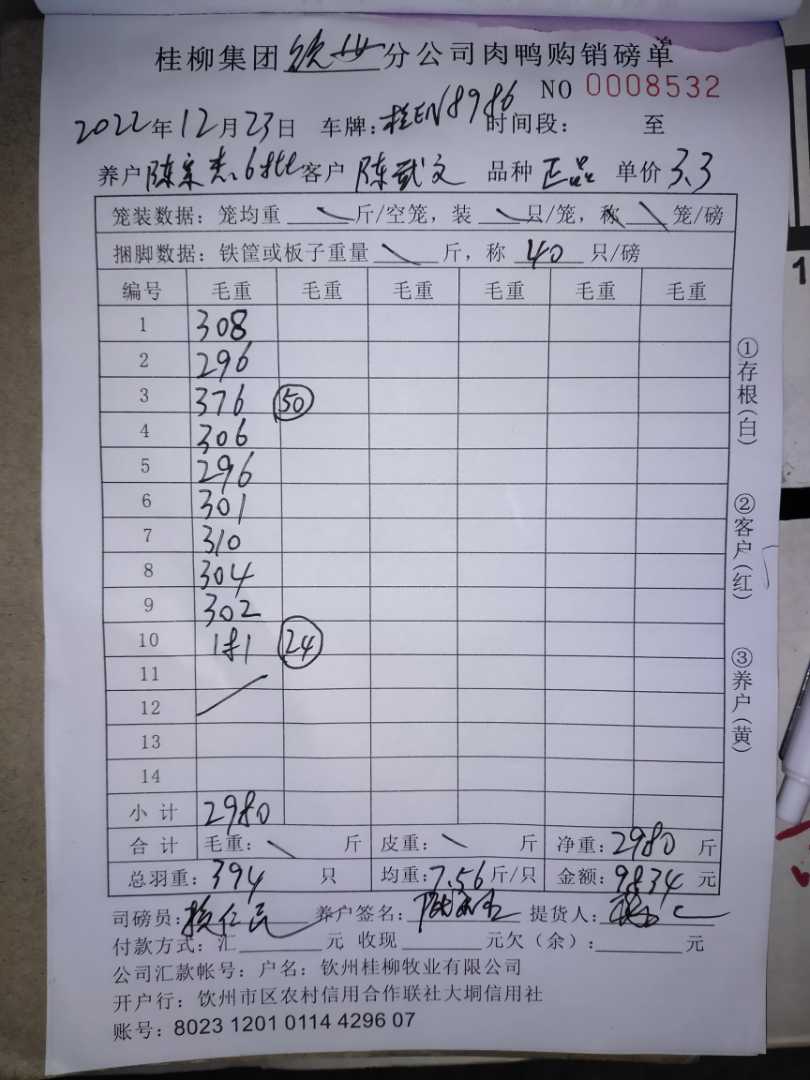 桂柳集团钦州分公司肉鸭购销磅单
NO 0008532
2022年12月23日 车牌:桂EN8986 时间段: 至
养户 陈宗杰 6批 客户 陈武文 品种 正品 单价 3.3
笼装数据: 笼均重 \ 斤/空笼, 装 \ 只/笼, 称 \ 笼/磅
捆脚数据: 铁筐或板子重量 \ 斤, 称 40 只/磅
编号 毛重 毛重 毛重 毛重 毛重 毛重
1 308
2 296
3 376 50
4 306
5 296
6 301
7 310
8 304
9 302
10 181 24
11
12
13
14
小计 2980
合计 毛重: \ 斤 皮重: \ 斤 净重: 2980 斤
总羽重: 394 只 均重: 7.56 斤/只 金额: 9834 元
司磅员: 养户签名: 提货人:
付款方式: 汇 元 收现 元欠(余): 元
公司汇款帐号: 户名: 钦州桂柳牧业有限公司
开户行: 钦州市区农村信用合作联社大垌信用社
账号: 8023 1201 0114 4296 07
①存根(白)
②客户(红)
③养户(黄)